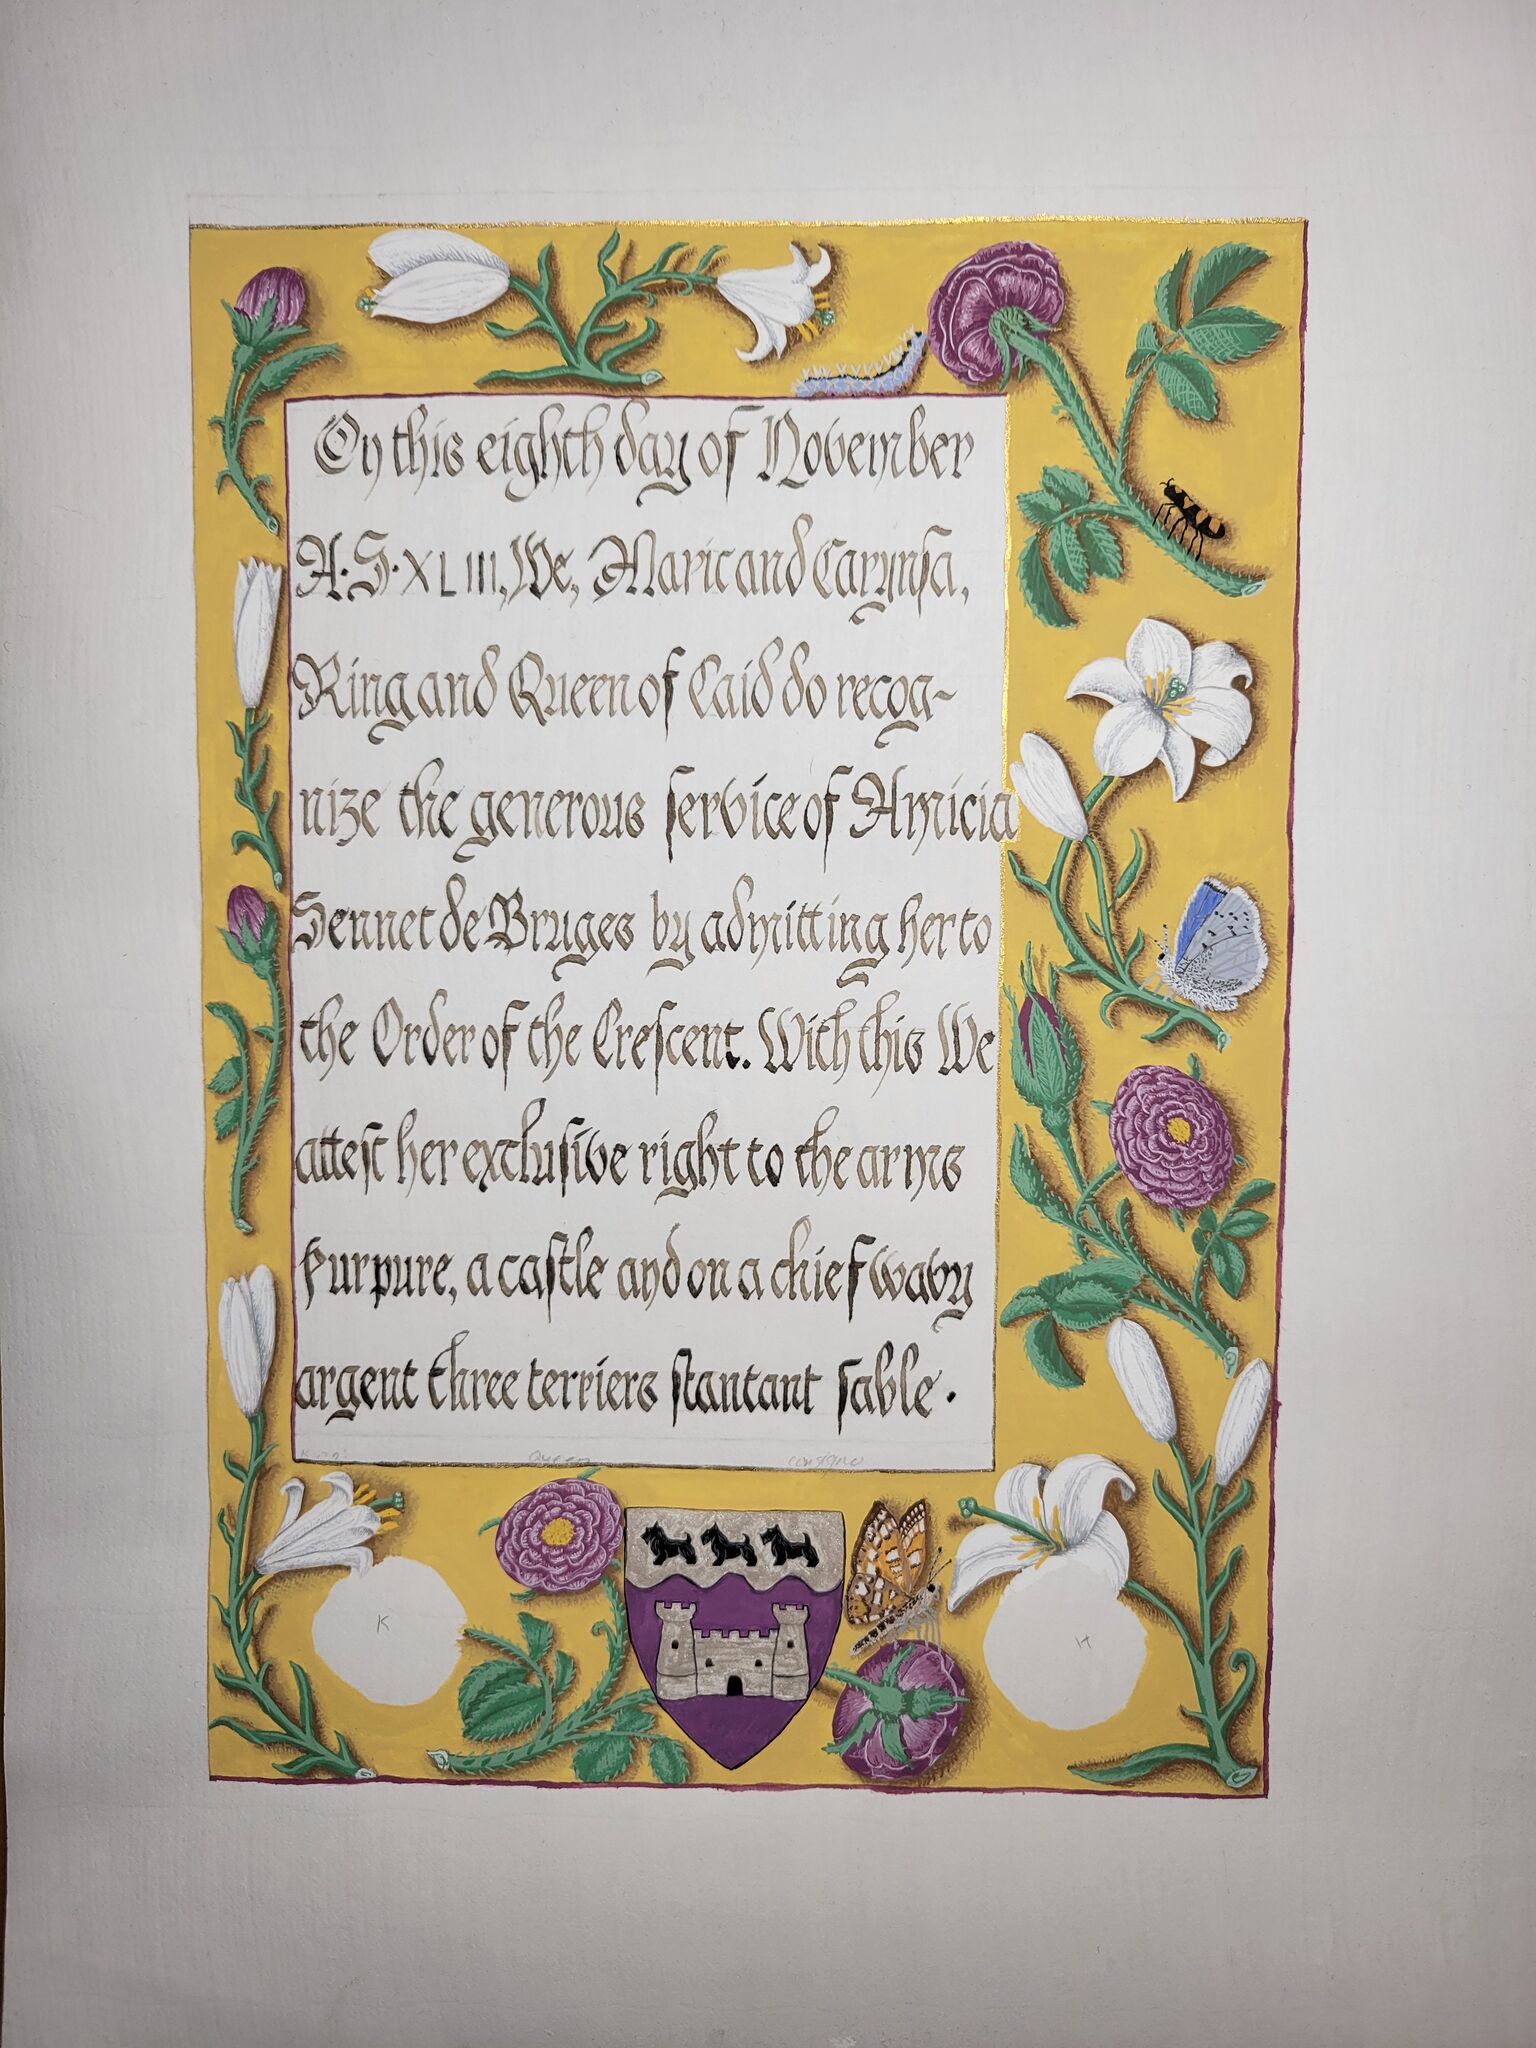 On this eighth day of November
A·S·XLIII, We, Maric and Carynsa,
King and Queen of Caid do recog~
nize the generous service of Amicia
Sennet de Bruges by admitting her to
the Order of the Crescent. With this We
attest her exclusive right to the arms
Purpure, a castle and on a chief wavy
argent three terriers stantant sable.
King Queen
K
H